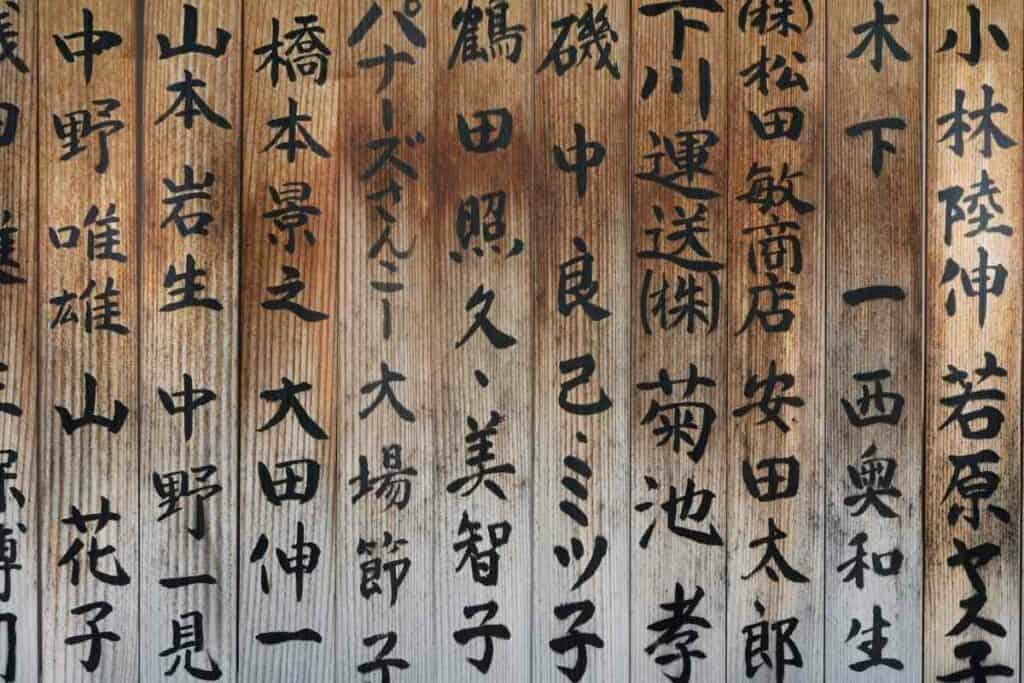 小林陸伸 若原ヤス子
木下 一 西奥和生
(株)松田敏商店 安田太郎
下川運送(株) 菊池 孝
磯中良己、ミツ子
鶴田照久、美智子
パナーズさんこー 大場節子
橋本景之 大田伸一
山本岩生 中野一見
中野唯雄 山花子